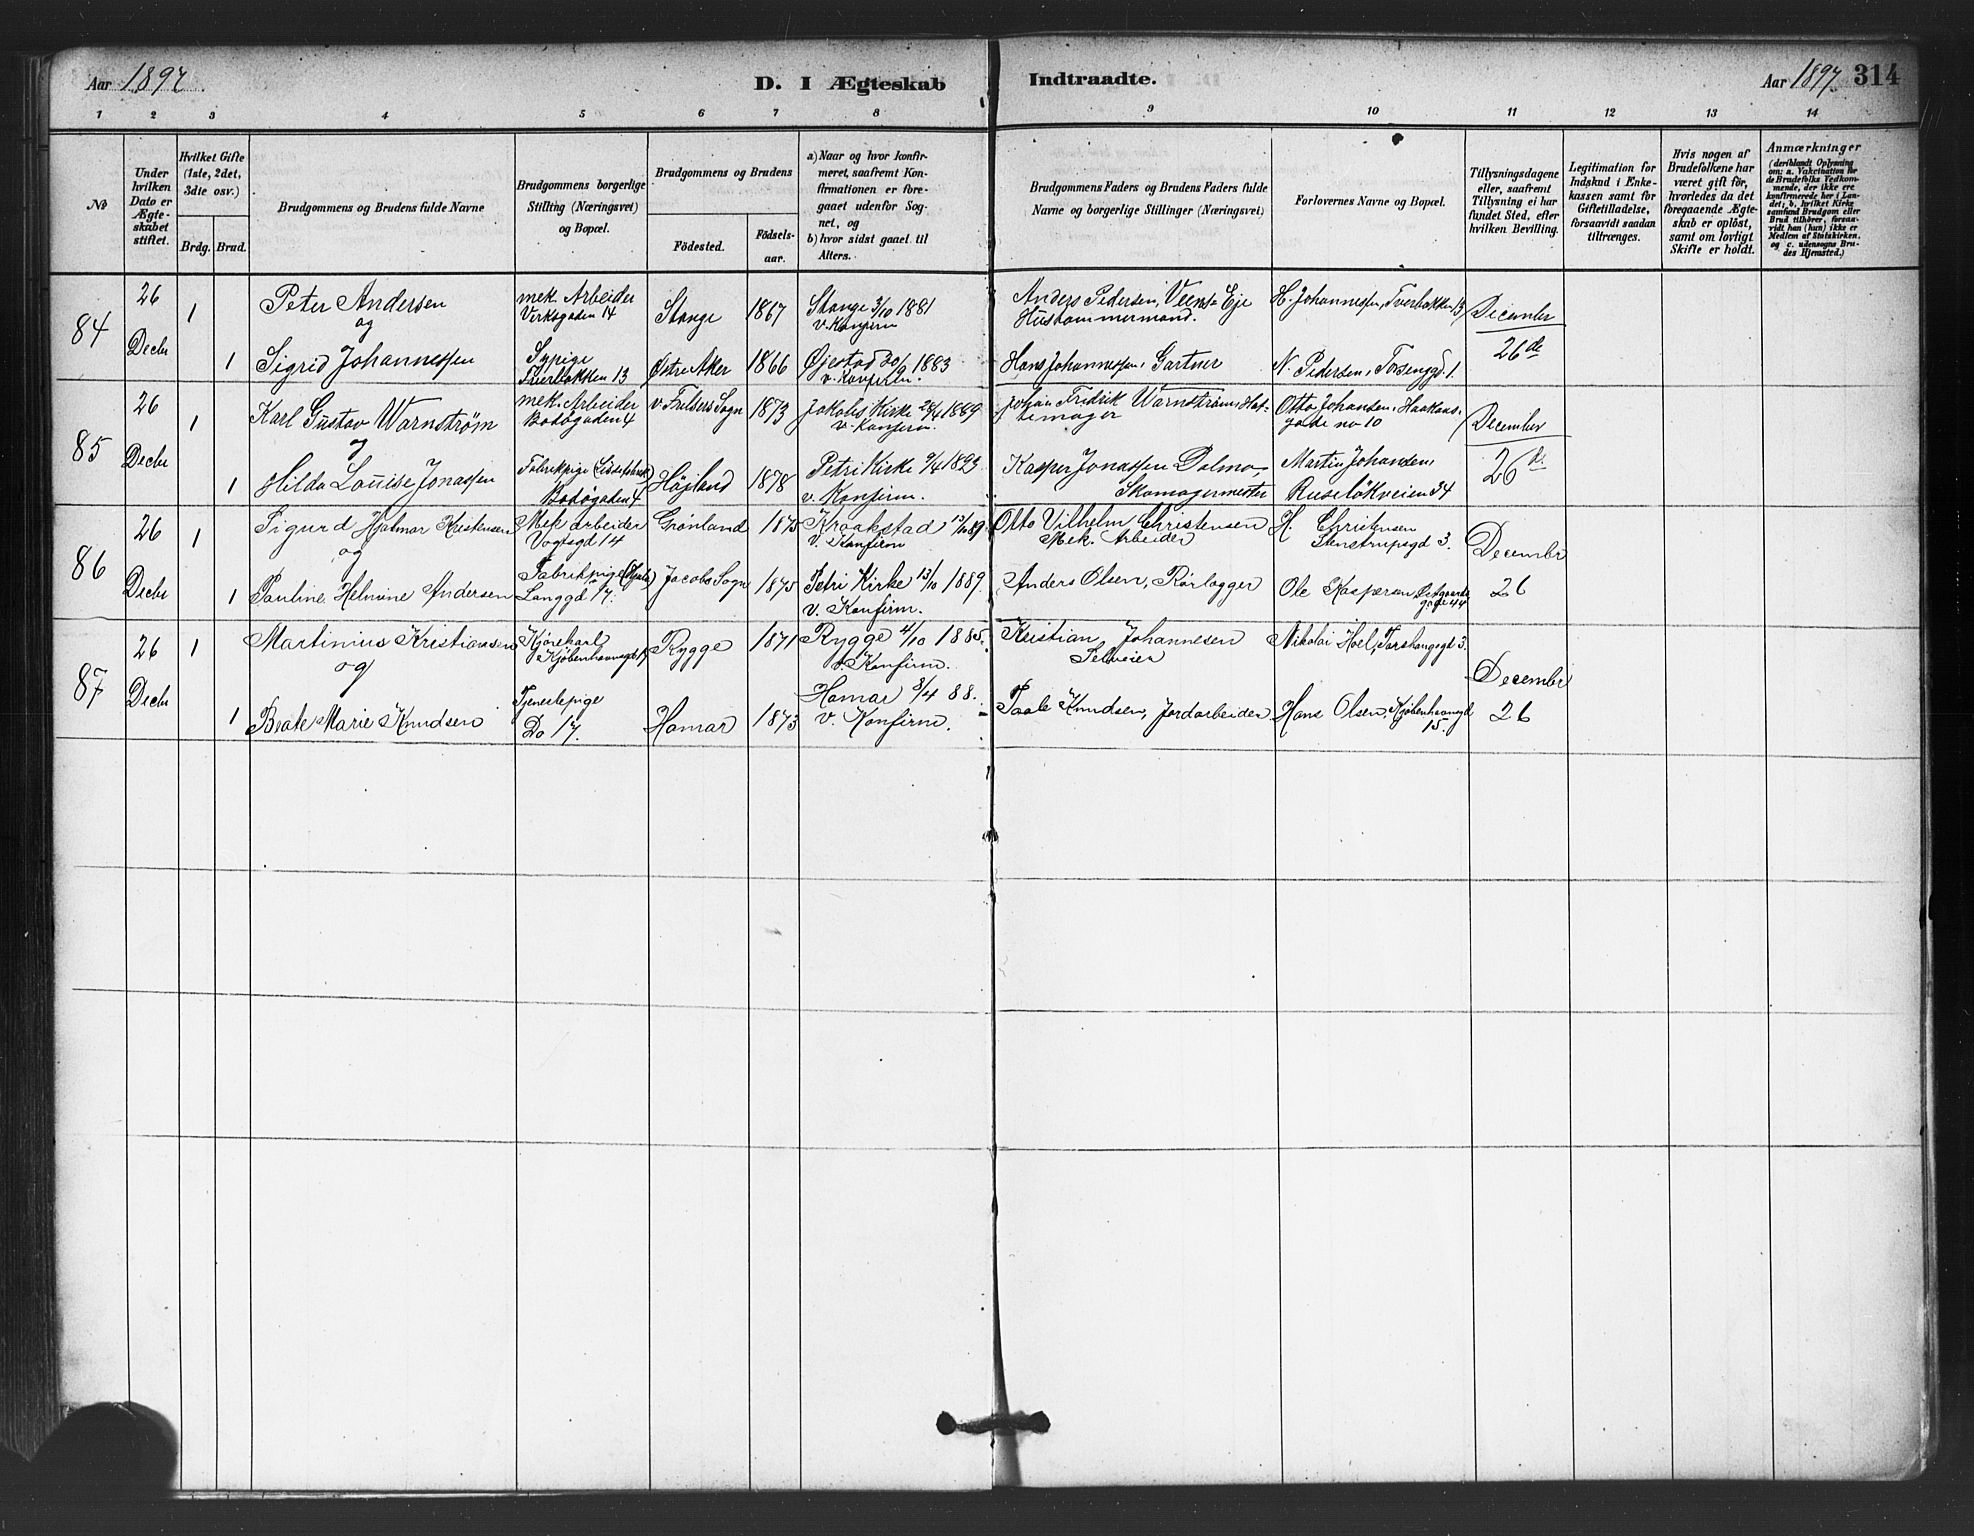 Aar 1897.
D. I Ægteskab
Indtraadte.
Aar 1897. 314
1 2 3 4 5 6 7 8 9 10 11 12 13 14
No
Under hvilken Dato er Ægteskabet stiftet.
Hvilket Gifte (1ste, 2det, 3die osv.)
Brdg. Brud.
Brudgommens og Brudens fulde Navne
Brudgommens borgerlige Stilling (Næringsvei) og Bopæl.
Brudgommens og Brudens
Fødested.
Fødsels-aar.
a) Naar og hvor konfirmeret, saafremt Konfirmationen er foregaaet udenfor Sognet, og
b) hvor sidst gaaet til Alters.
Brudgommens Faders og Brudens Faders fulde Navne og borgerlige Stillinger (Næringsvei)
Forlovernes Navne og Bopæl.
Tillysningsdagene eller, saafremt Tillysning ei har fundet Sted, efter hvilken Bevilling.
Legitimation for Indskud i Enkekassen samt for Giftetilladelse, forsaavidt saadan tiltrænges.
Hvis nogen af Brudefolkene har været gift før, hvorledes da det foregaaende Ægteskab er opløst, samt om lovligt Skifte er holdt.
Anmærkninger
(deriblandt Oplysning om: a. Vaksination for de Brudefolks Vedkommende, der ikke ere konfirmerede her i Landet; b. hvilket Kirkesamfund Brudgom eller Brud tilhører, forsaavidt han (hun) ikke er Medlem af Statskirken, og c. udensogns Brudes Hjemsted.)
84
26 Decbr
1
Peter Andersen
og
mek. Arbeider
Verksgaden 14
Stange
1867
Stange 3/10 1881
v. Konfirm
Anders Pedersen, Eje
Hustømmermand.
H. Johannessen, Tverbakken 13
December
26de
1
Sigrid Johannessen
Sypige
Tverbakken 13
Østre Aker
1866
Øjestad 30/9 1883
v. Konfirm.
Hans Johannessen, Gartner
N. Pedersen, 1.
85
26 Decbr
1
Karl Gustav Warnstrøm
og
mek. Arbeider
Bodøgaden 4
v. Frelsers Sogn
1873
Jakobs Kirke 28/4 1889
v. Konfirm.
Johan Fredrik Warnstrøm, Hat-
temager
Otto Johansen, Haakons-
gade no 10
December
26de
1
Hilda Louise Jonassen
Fabrikpige
Bodøgaden 4
Højland
1878
Petri Kirke 9/4 1893
v. Konfirm.
Kasper Jonassen Dalmo,
Skomagermester
Martin Johansen,
Ruseløkveien 34
86
26 Decbr
1
Sigurd Hjalmar Kristensen
og
Mek arbeider
Vogtsgd 14
Grønland
1875
Kraakstad 13/10 89
v. Konfirm
Otto Vilhelm Christensen
Mek. Arbeider
H. Christensen
Stenstrupsgd 3.
Decembr
26
1
Pauline Helmine Andersen
Fabrikpige
Langgd 17.
Jacobs Sogn
1875
Petri Kirke 13/10 1889.
v. Konfirm.
Anders Olsen, Rørlægger
Ole Kaspersen,
gade 44
87
26 Decbr
1
Martinius Kristiansen
og
Kjørekarl
Kjøbenhavnsgd 17
Rygge
1871
Rygge 4/10 1885.
v. Konfirm.
Kristian Johannesen
Selveier
Nikolai Hoel, 3.
Decembr
26
1
Beate Marie Knudsen
Tjenestepige
Do 17.
Hamar
1873
Hamar 8/4 88.
v. Konfirm.
Knudsen, Jordarbeider
Hans Olsen, Kjøbenhavnsgd
15.